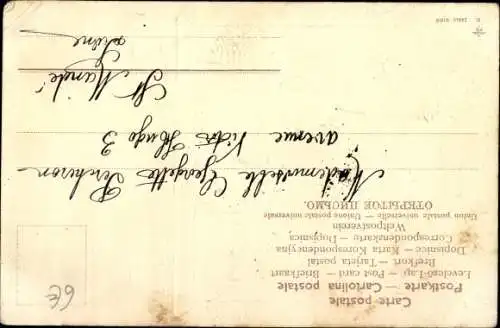 Carte postale
Postkarte — Cartolina postale
Levelező-Lap — Post card — Briefkaart
Brefkort — Tarjeta postal
Dopisnice — Karta Korespondencyjna
Correspondenzkarte — Dopisnica
Weltpostverein
Union postale universelle — Unione postale universale
ОТКРЫТОЕ ПИСЬМО.
Mademoiselle Georgette Pencheron
avenue Victor Hugo 3
St Mandé
Seine
6€